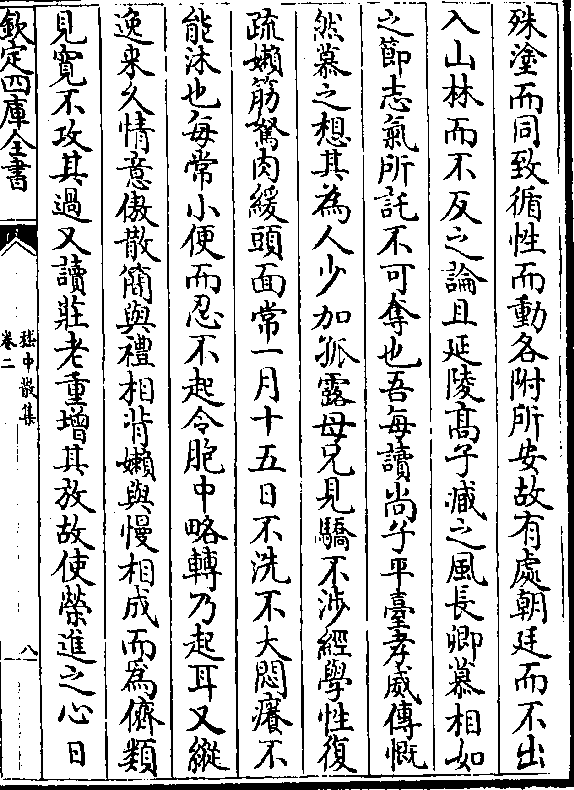 殊塗而同致循性而動各附所安故有處朝廷而不出
入山林而不反之論且延陵髙子臧之風長卿慕相如
之節志氣所託不可奪也吾每讀尚子平臺孝威傳慨
然慕之想其為人少加孤露母兄見驕不涉經學性復
疏嬾筋駑肉緩頭面常一月十五日不洗不大悶癢不
能沐也每常小便而忍不起令胞中略轉乃起耳又縱
逸来久情意傲散簡與禮相背嬾與慢相成而為儕類
見寛不攻其過又讀莊老重增其放故使榮進之心日
欽定四庫全書
嵇中散集
卷二
八